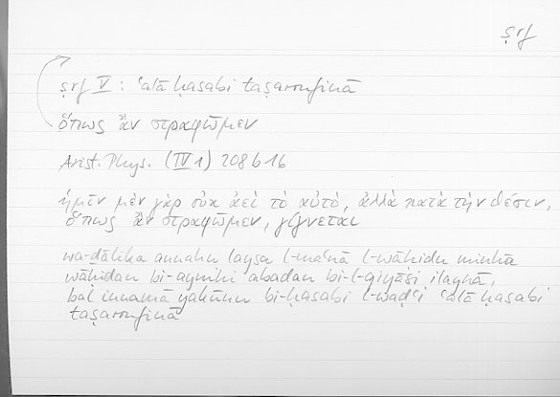 ṣrf
ṣrf V : ʿalā ḥasabi taṣarrufinā
ὅπως ἂν στραφῶμεν
Arist. Phys. (IV 1) 208 b 16
ἡμῖν μὲν γὰρ οὐκ ἀεὶ τὸ αὐτό, ἀλλὰ κατὰ τὴν θέσιν,
ὅπως ἂν στραφῶμεν, γίγνεται
wa-ḏālika annahu laysa l-maʿnā l-wāḥidu minhā
wāḥidan bi-ʿaynihi abadan bi-l-qiyāsi ilaynā,
bal innamā yakūnu bi-ḥasabi l-waḍʿi ʿalā ḥasabi
taṣarrufinā